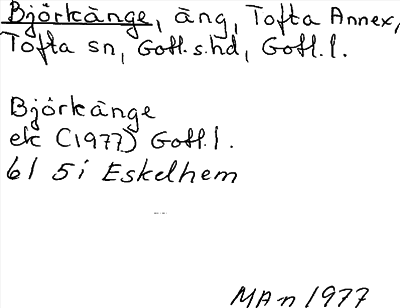 Björkänge, äng, Tofta Annex,
Tofta sn, Gotl.s.hd, Gotl.l.
Björkänge
ek (1977) Gotl.l.
6I 5i Eskelhem
MAn 1977